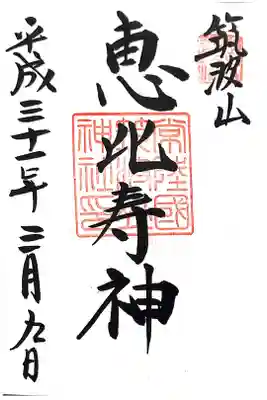 筑波山
恵比寿神
常陸國
神社印
平成三十一年三月九日